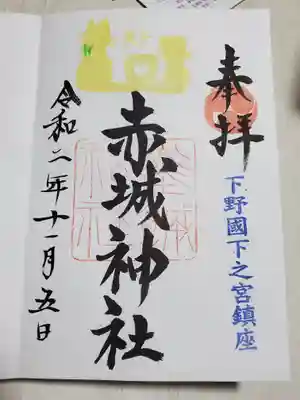 奉拝
下野國下之宮鎮座
赤城神社
令和二年十一月五日